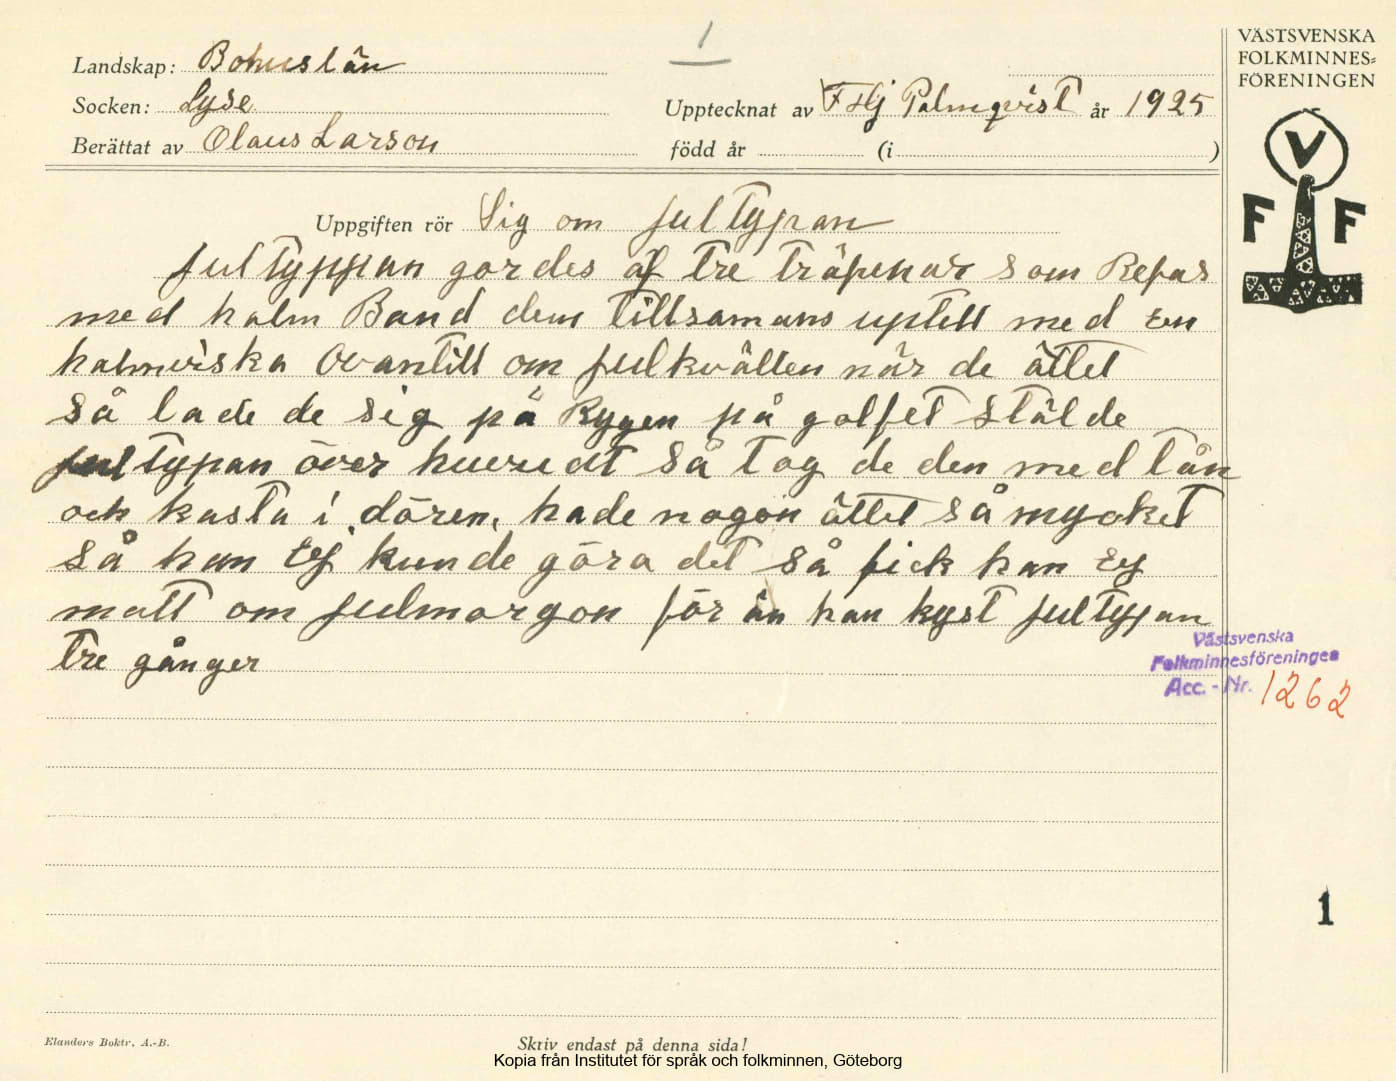 1
VÄSTSVENSKA
FOLKMINNES=
FÖRENINGEN
V
F F
Landskap: Bohuslän
Socken: Lyse
Upptecknat av F Hj Palmqvist år 1925
Berättat av Olaus Larson
född år (i )
Uppgiften rör Sig om jultypan
jultyppan gordes af tre träpenar som Repas
med halm Band dem tillsamans uptill med en
halmviska Ovantill om julkvällen när de ättet
så lade de sig på Rygen på golfet stälde
jultypan över huvudt så tog de den med tån
och kasta i dören, hade nogon ättet så mycket
så han Ej kunde göra det så fick han Ej
matt om julmorgon för än han kyst jultypan
tre gånger
Västsvenska
Folkminnesföreningen
Acc. - Nr. 1262
1
Elanders Boktr. A.-B.
Skriv endast på denna sida!
Kopia från Institutet för språk och folkminnen, Göteborg